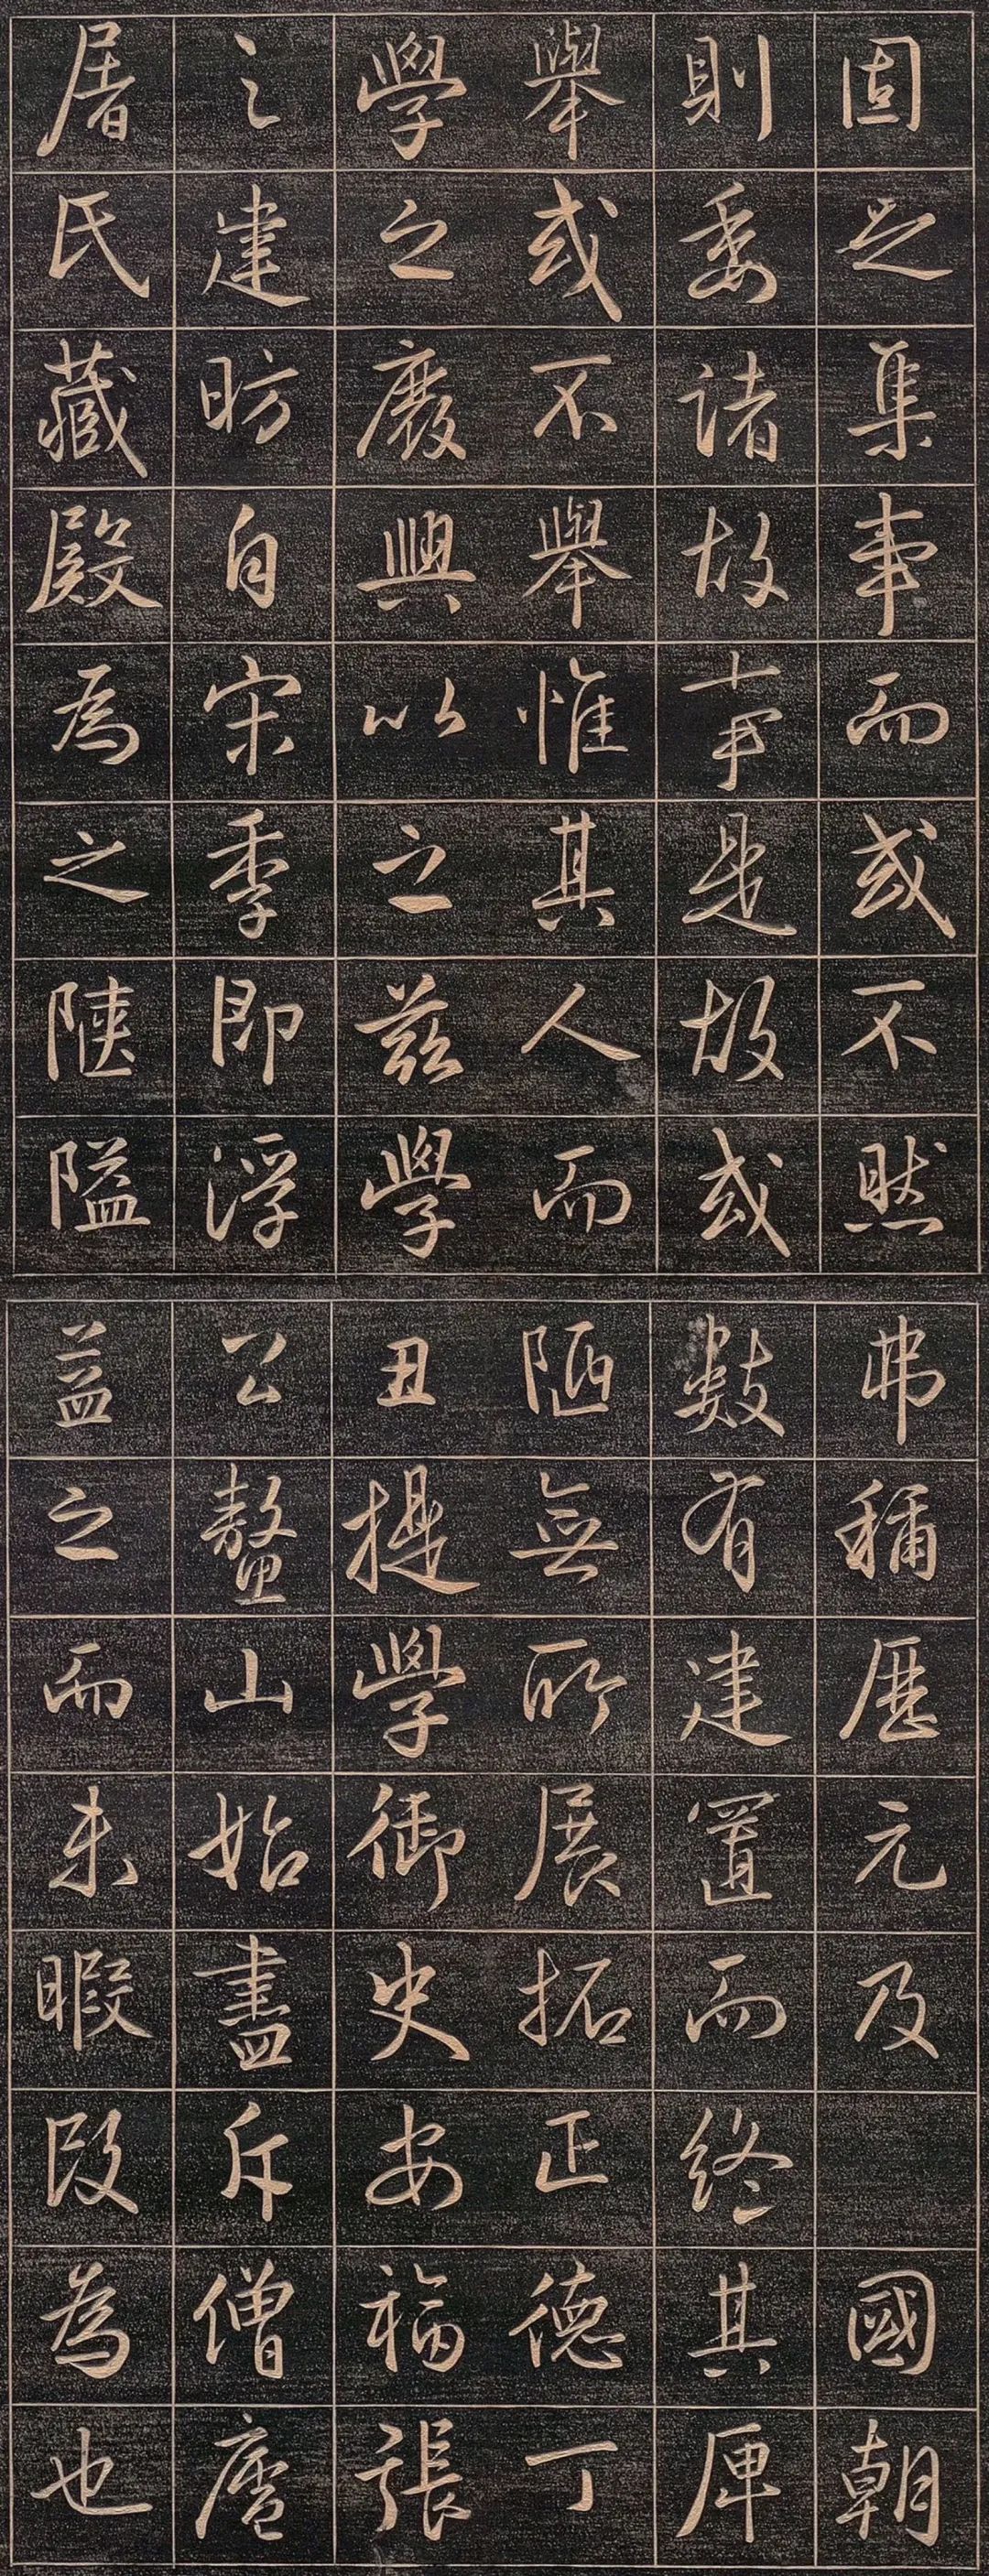 固足集事而或不然
則委諸故事是故或
舉或不舉惟其人而
學之廢興以之茲學
之建昉自宋季即浮
屠氏藏殿為之陿隘
弗稱歷元及 國朝
數有建置而終其庳
陋無所展拓正德丁
丑提學御史安福張
公鼇山始盡斥僧廬
益之而未暇改為也